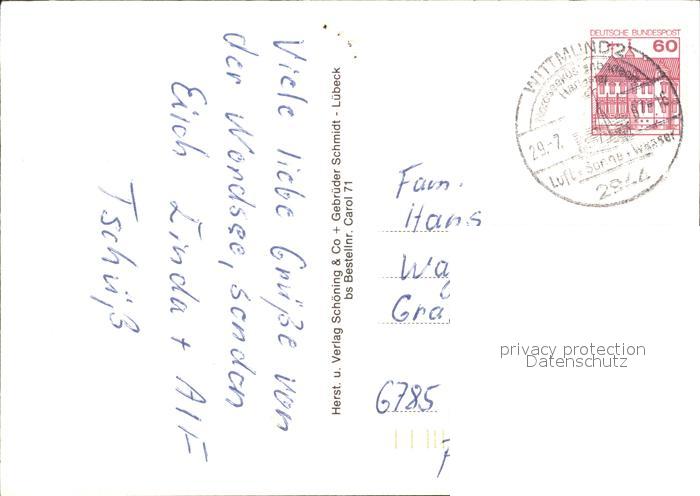 Viele liebe Grüße von
der Nordsee, senden
Euch Linda + Alf
Tschüß
Herst. u. Verlag Schöning & Co + Gebrüder Schmidt - Lübeck
bs Bestellnr. Carol 71
DEUTSCHE BUNDESPOST
60
WITTMUND 2
29.-7.
Luft · Sonne · Wasser
2944
Fam.
Hans
Wa
Grä
6785
privacy protection
Datenschutz